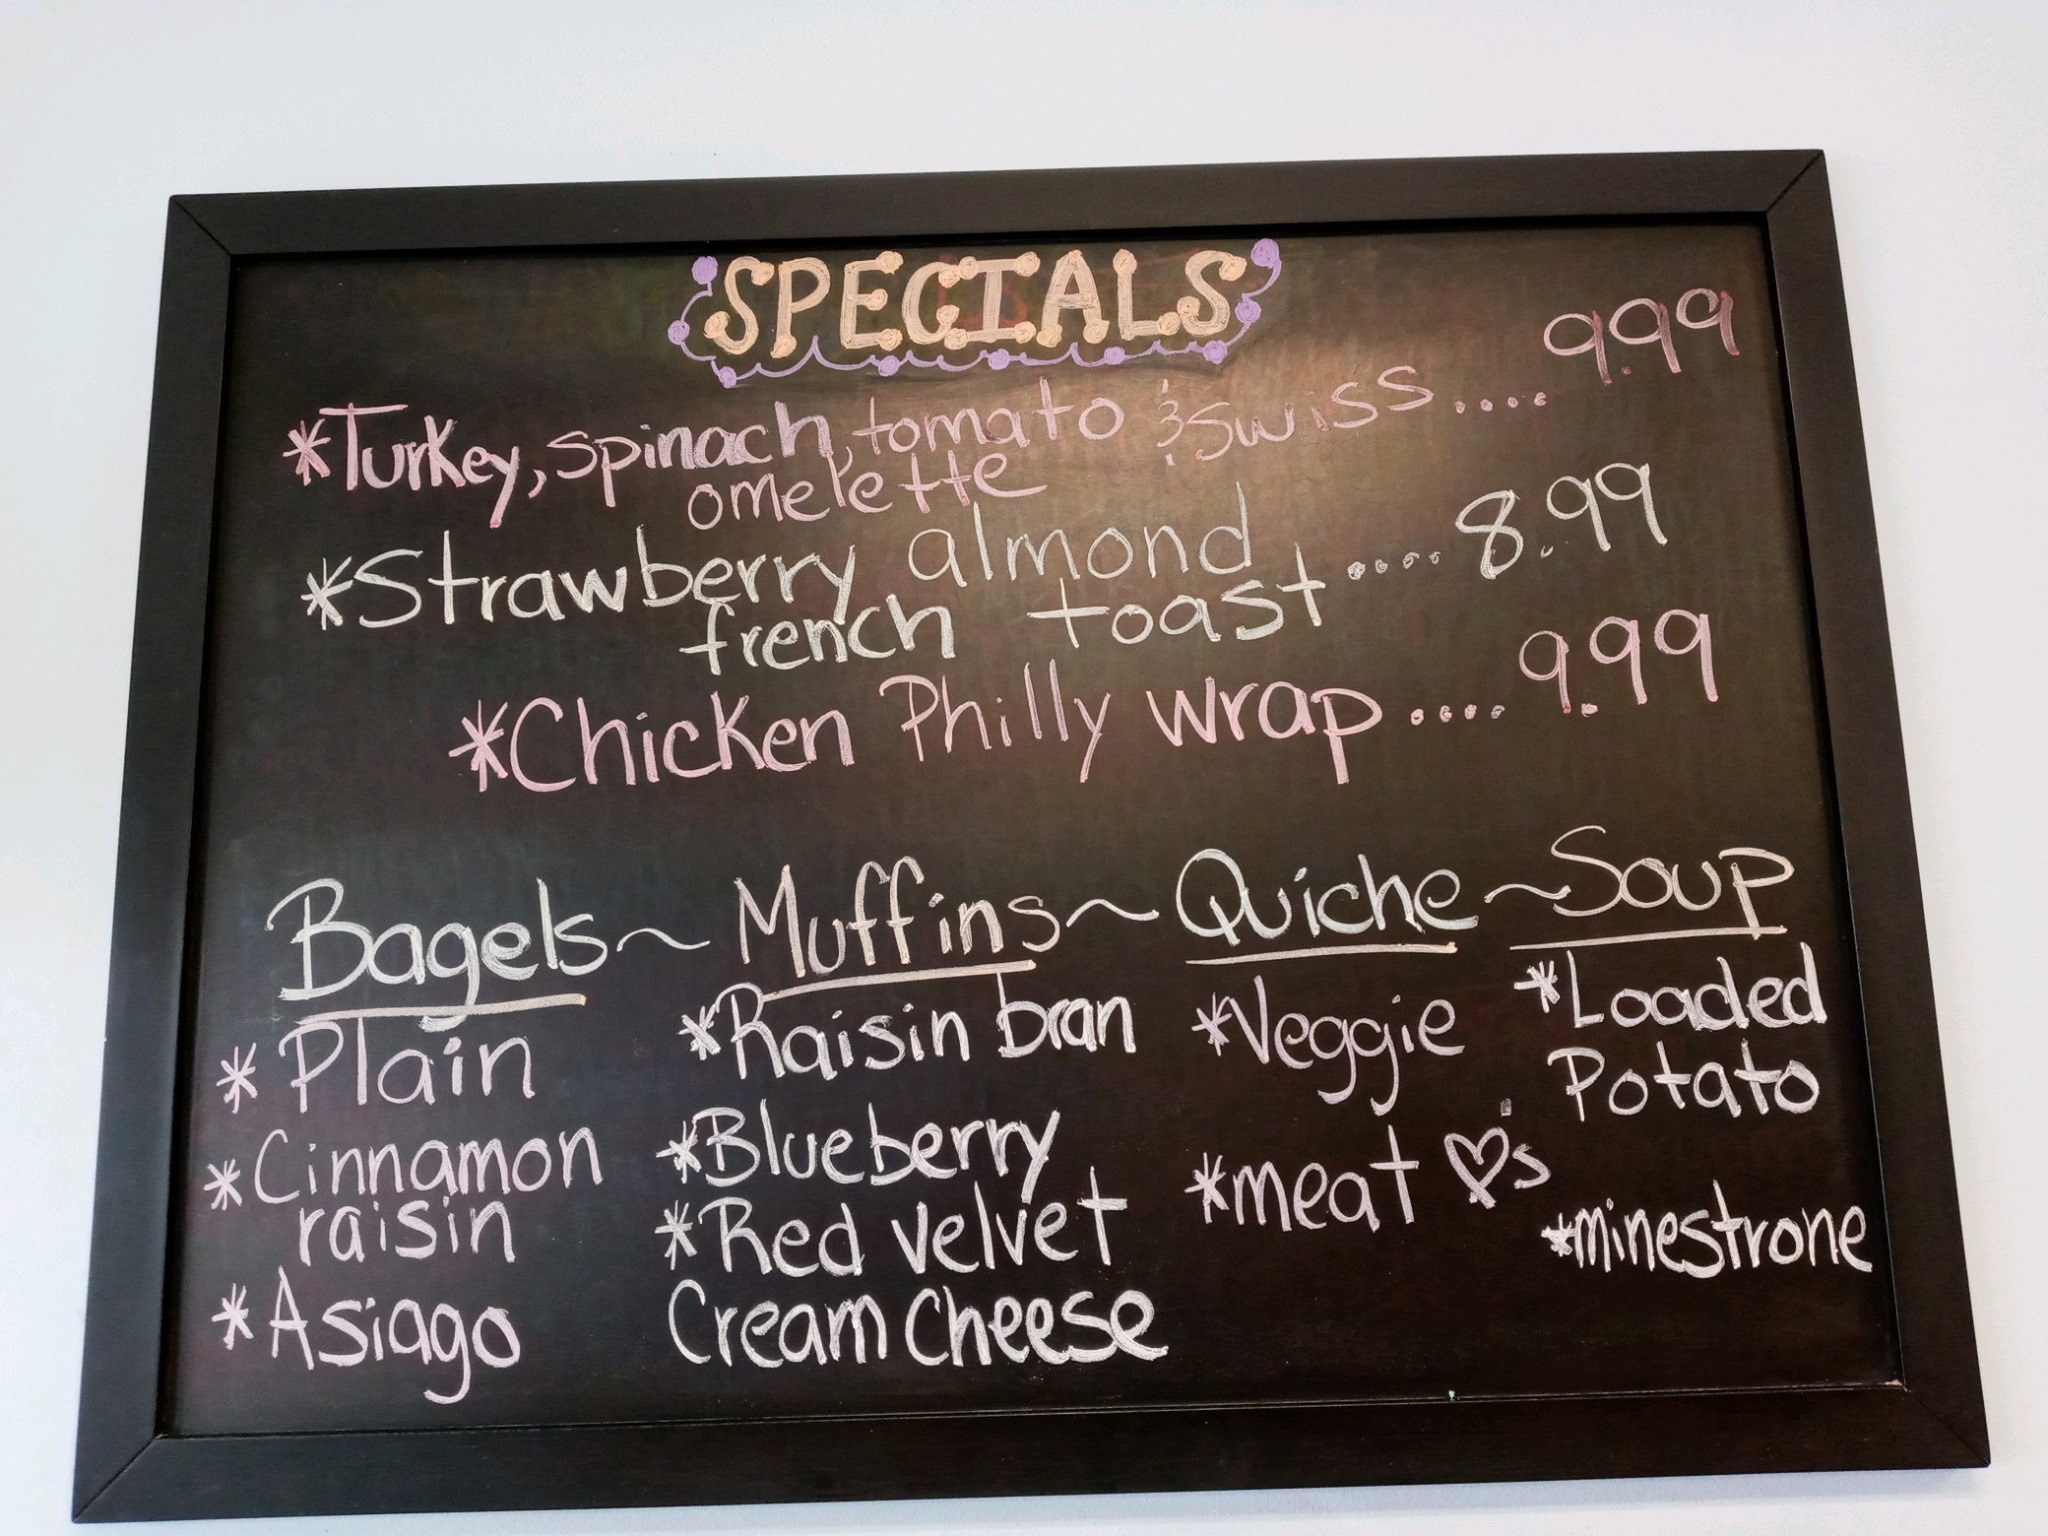 SPECIALS
*Turkey, spinach, tomato & swiss.... 9.99
omelette
*Strawberry almond
french toast.... 8.99
*Chicken Philly wrap.... 9.99
Bagels~ Muffins~ Quiche~Soup
*Plain
*Cinnamon
raisin
*Asiago
*Raisin bran
*Blueberry
*Red velvet
Cream cheese
*Veggie
*meat ♡s
*Loaded
Potato
*minestrone